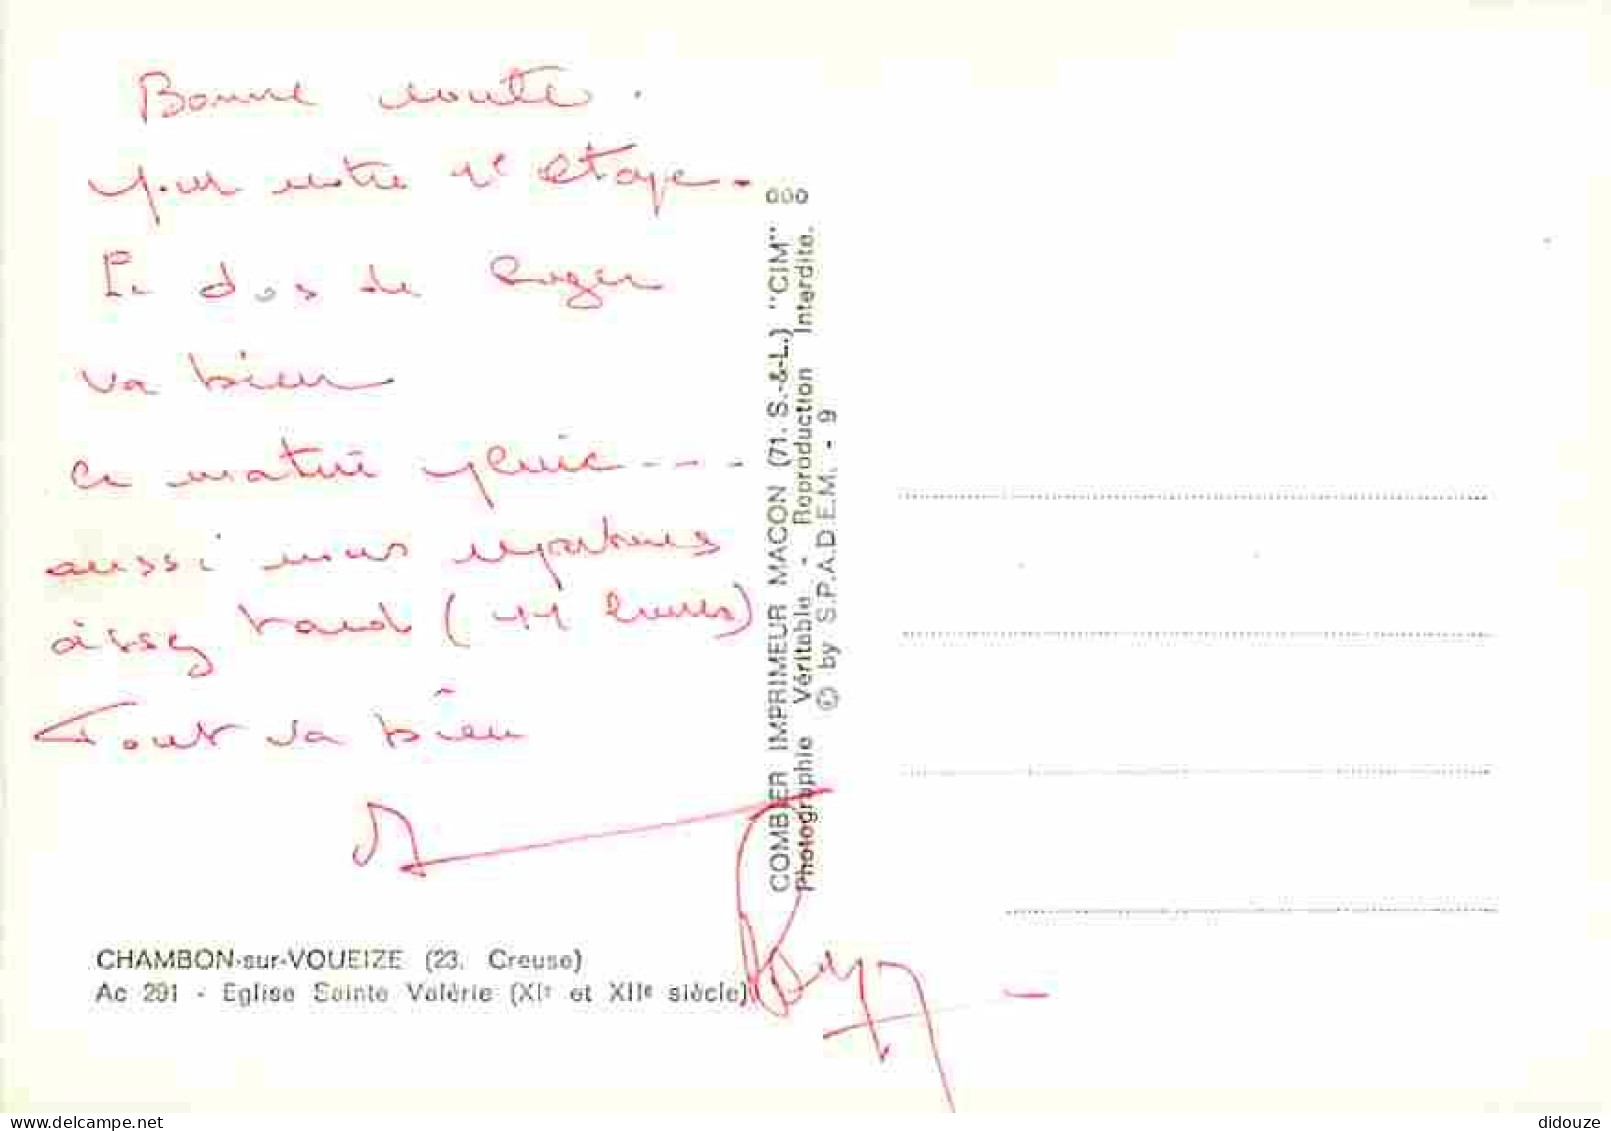 Bonne route .
pour notre 1e etape.
Le dos de Roger
va bien
Ce matin pluie ----
aussi nous repartons
assez tard (11 heures)
Tout va bien
CHAMBON-sur-VOUEIZE (23. Creuse)
Ac 291 - Eglise Sainte Valérie (XIe et XIIe siècle)
COMBIER IMPRIMEUR MACON (71. S.-&-L.) "CIM"
Photographie Véritable - Reproduction Interdite.
© by S.P.A.D.E.M. - 9
delcampe.net
didouze